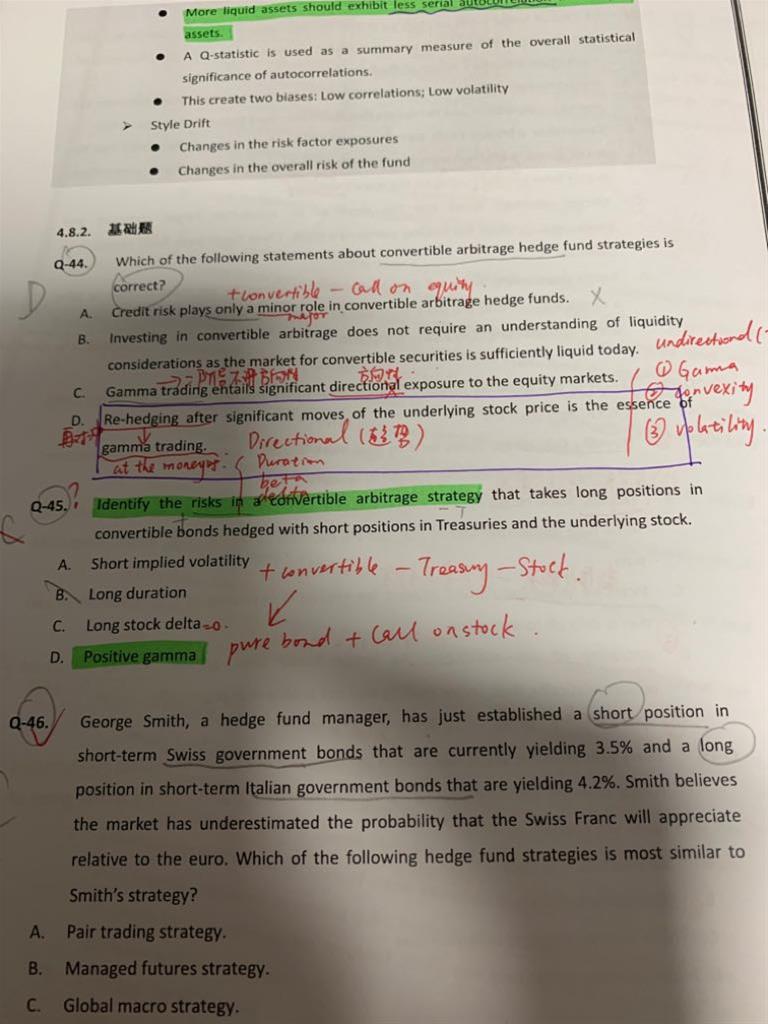 • More liquid assets should exhibit less serial autocorrelation
assets.
• A Q-statistic is used as a summary measure of the overall statistical
significance of autocorrelations.
• This create two biases: Low correlations; Low volatility
➢ Style Drift
• Changes in the risk factor exposures
• Changes in the overall risk of the fund
4.8.2. 基础题
Q-44. Which of the following statements about convertible arbitrage hedge fund strategies is
D correct?
+convertible – call on equity
A. Credit risk plays only a minor role in convertible arbitrage hedge funds. X
major
B. Investing in convertible arbitrage does not require an understanding of liquidity
considerations as the market for convertible securities is sufficiently liquid today.
undirectional (
方向性
C. Gamma trading entails significant directional exposure to the equity markets.
① Gamma
② convexity
③ volatility.
D. Re-hedging after significant moves of the underlying stock price is the essence of
再对冲
gamma trading.
Directional (趋势)
at the money
Duration
beta
delta
Q-45. ? Identify the risks in a convertible arbitrage strategy that takes long positions in
convertible bonds hedged with short positions in Treasuries and the underlying stock.
A. Short implied volatility
+ convertible – Treasury – Stock.
B. Long duration
C. Long stock delta =0.
pure bond + Call on stock.
D. Positive gamma
Q-46. George Smith, a hedge fund manager, has just established a short position in
short-term Swiss government bonds that are currently yielding 3.5% and a long
position in short-term Italian government bonds that are yielding 4.2%. Smith believes
the market has underestimated the probability that the Swiss Franc will appreciate
relative to the euro. Which of the following hedge fund strategies is most similar to
Smith's strategy?
A. Pair trading strategy.
B. Managed futures strategy.
C. Global macro strategy.